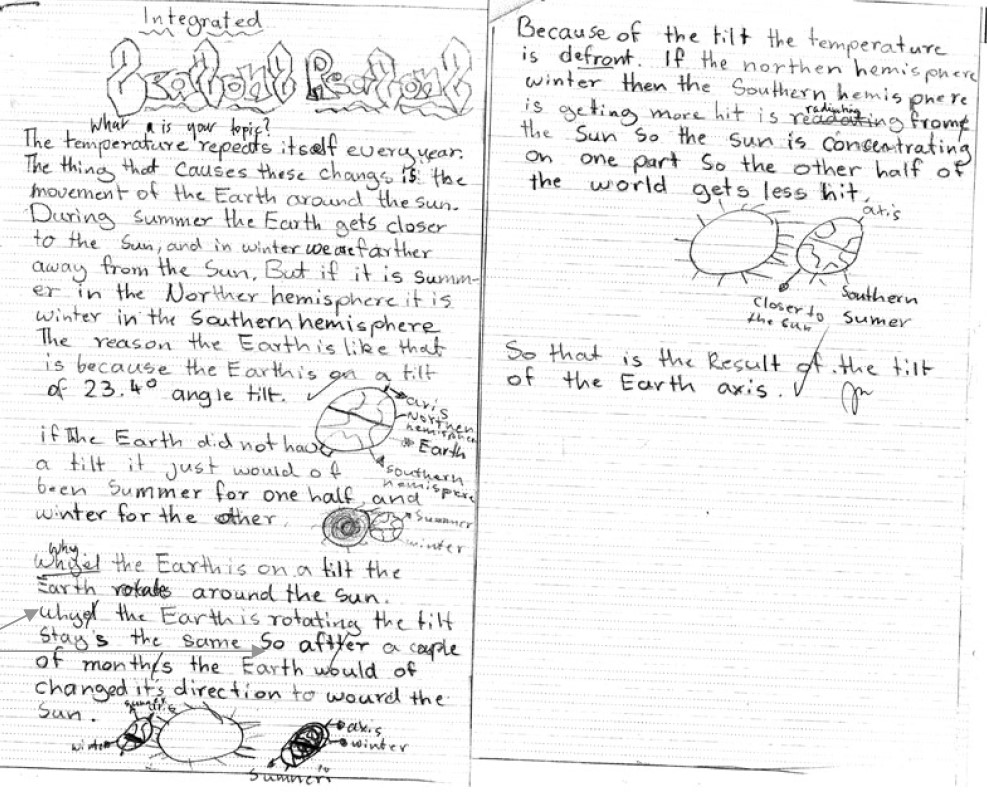 Integrated
What is your topic?
The temperature repeats itself every year.
The thing that causes these changs is the
movement of the Earth around the sun.
During summer the Earth gets closer
to the sun, and in winter we are farther
away from the sun. But if it is summ-
er in the Norther hemisphere it is
winter in the Southern hemisphere
The reason the Earth is like that
is because the Earth is on a tilt
of 23.4° angle tilt.
axis
Northen
hemisphere
Earth
Southern
hemispere
if the Earth did not have
a tilt it just would of
been Summer for one half and
winter for the other.
Summer
winter
why
the Earth is on a tilt the
Earth rotates around the sun.
the Earth is rotating the tilt
stay's the same So aftter a caple
of month's the Earth would of
changed it's direction to wourd the
Sun.
axis
winter
Summer
Because of the tilt the temperature
is defront. If the northen hemisphere
winter then the Southern hemisphere
is geting more hit is radiating frome
the Sun So the sun is concentrating
on one part So the other half of
the world gets less hit.
axis
Southern
Sumer
closer to
the sun
So that is the Result of the tilt
of the Earth axis.